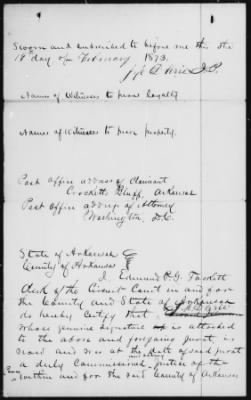 Sworn and subscribed to before me this the
18 day of February 1873.
J.P.
Names of Witnesses to prove loyalty
Names of Witnesses to prove property.
Post office address of Claimant
Crockett's Bluff, Arkansas
Post office address of Attorney
Washington, D.C.
State of Arkansas
County of Arkansas
I, Edmund R.G.
clerk of the Circuit Court in and for
the County and State of Arkansas
do hereby certify that
whose genuine signature is attached
to the above and foregoing jurat, is
and was at the date of said jurat
a duly Commissioned and acting justice of the
within and for the said County of Arkansas